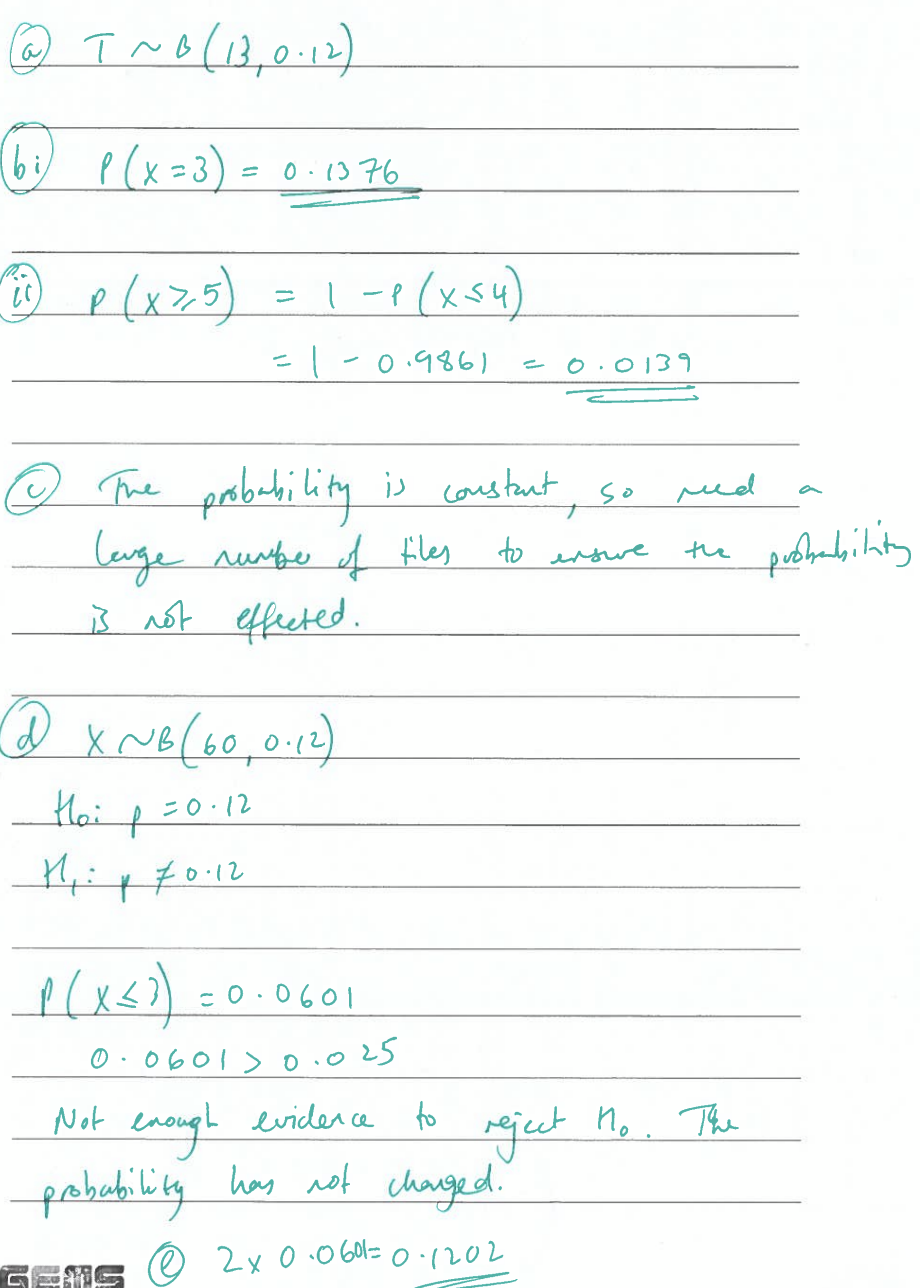 (a) T ~ B(13, 0.12)
(bi) P(X=3) = 0.1376
(ii) P(X≥5) = 1 - P(X≤4)
= 1 - 0.9861 = 0.0139
(c) The probability is constant, so need a
large number of tiles to ensure the probability
is not effected.
(d) X ~ B(60, 0.12)
H₀: p = 0.12
H₁: p ≠ 0.12
P(X≤3) = 0.0601
0.0601 > 0.025
Not enough evidence to reject H₀. The
probability has not changed.
GEMS (e) 2 x 0.0601 = 0.1202